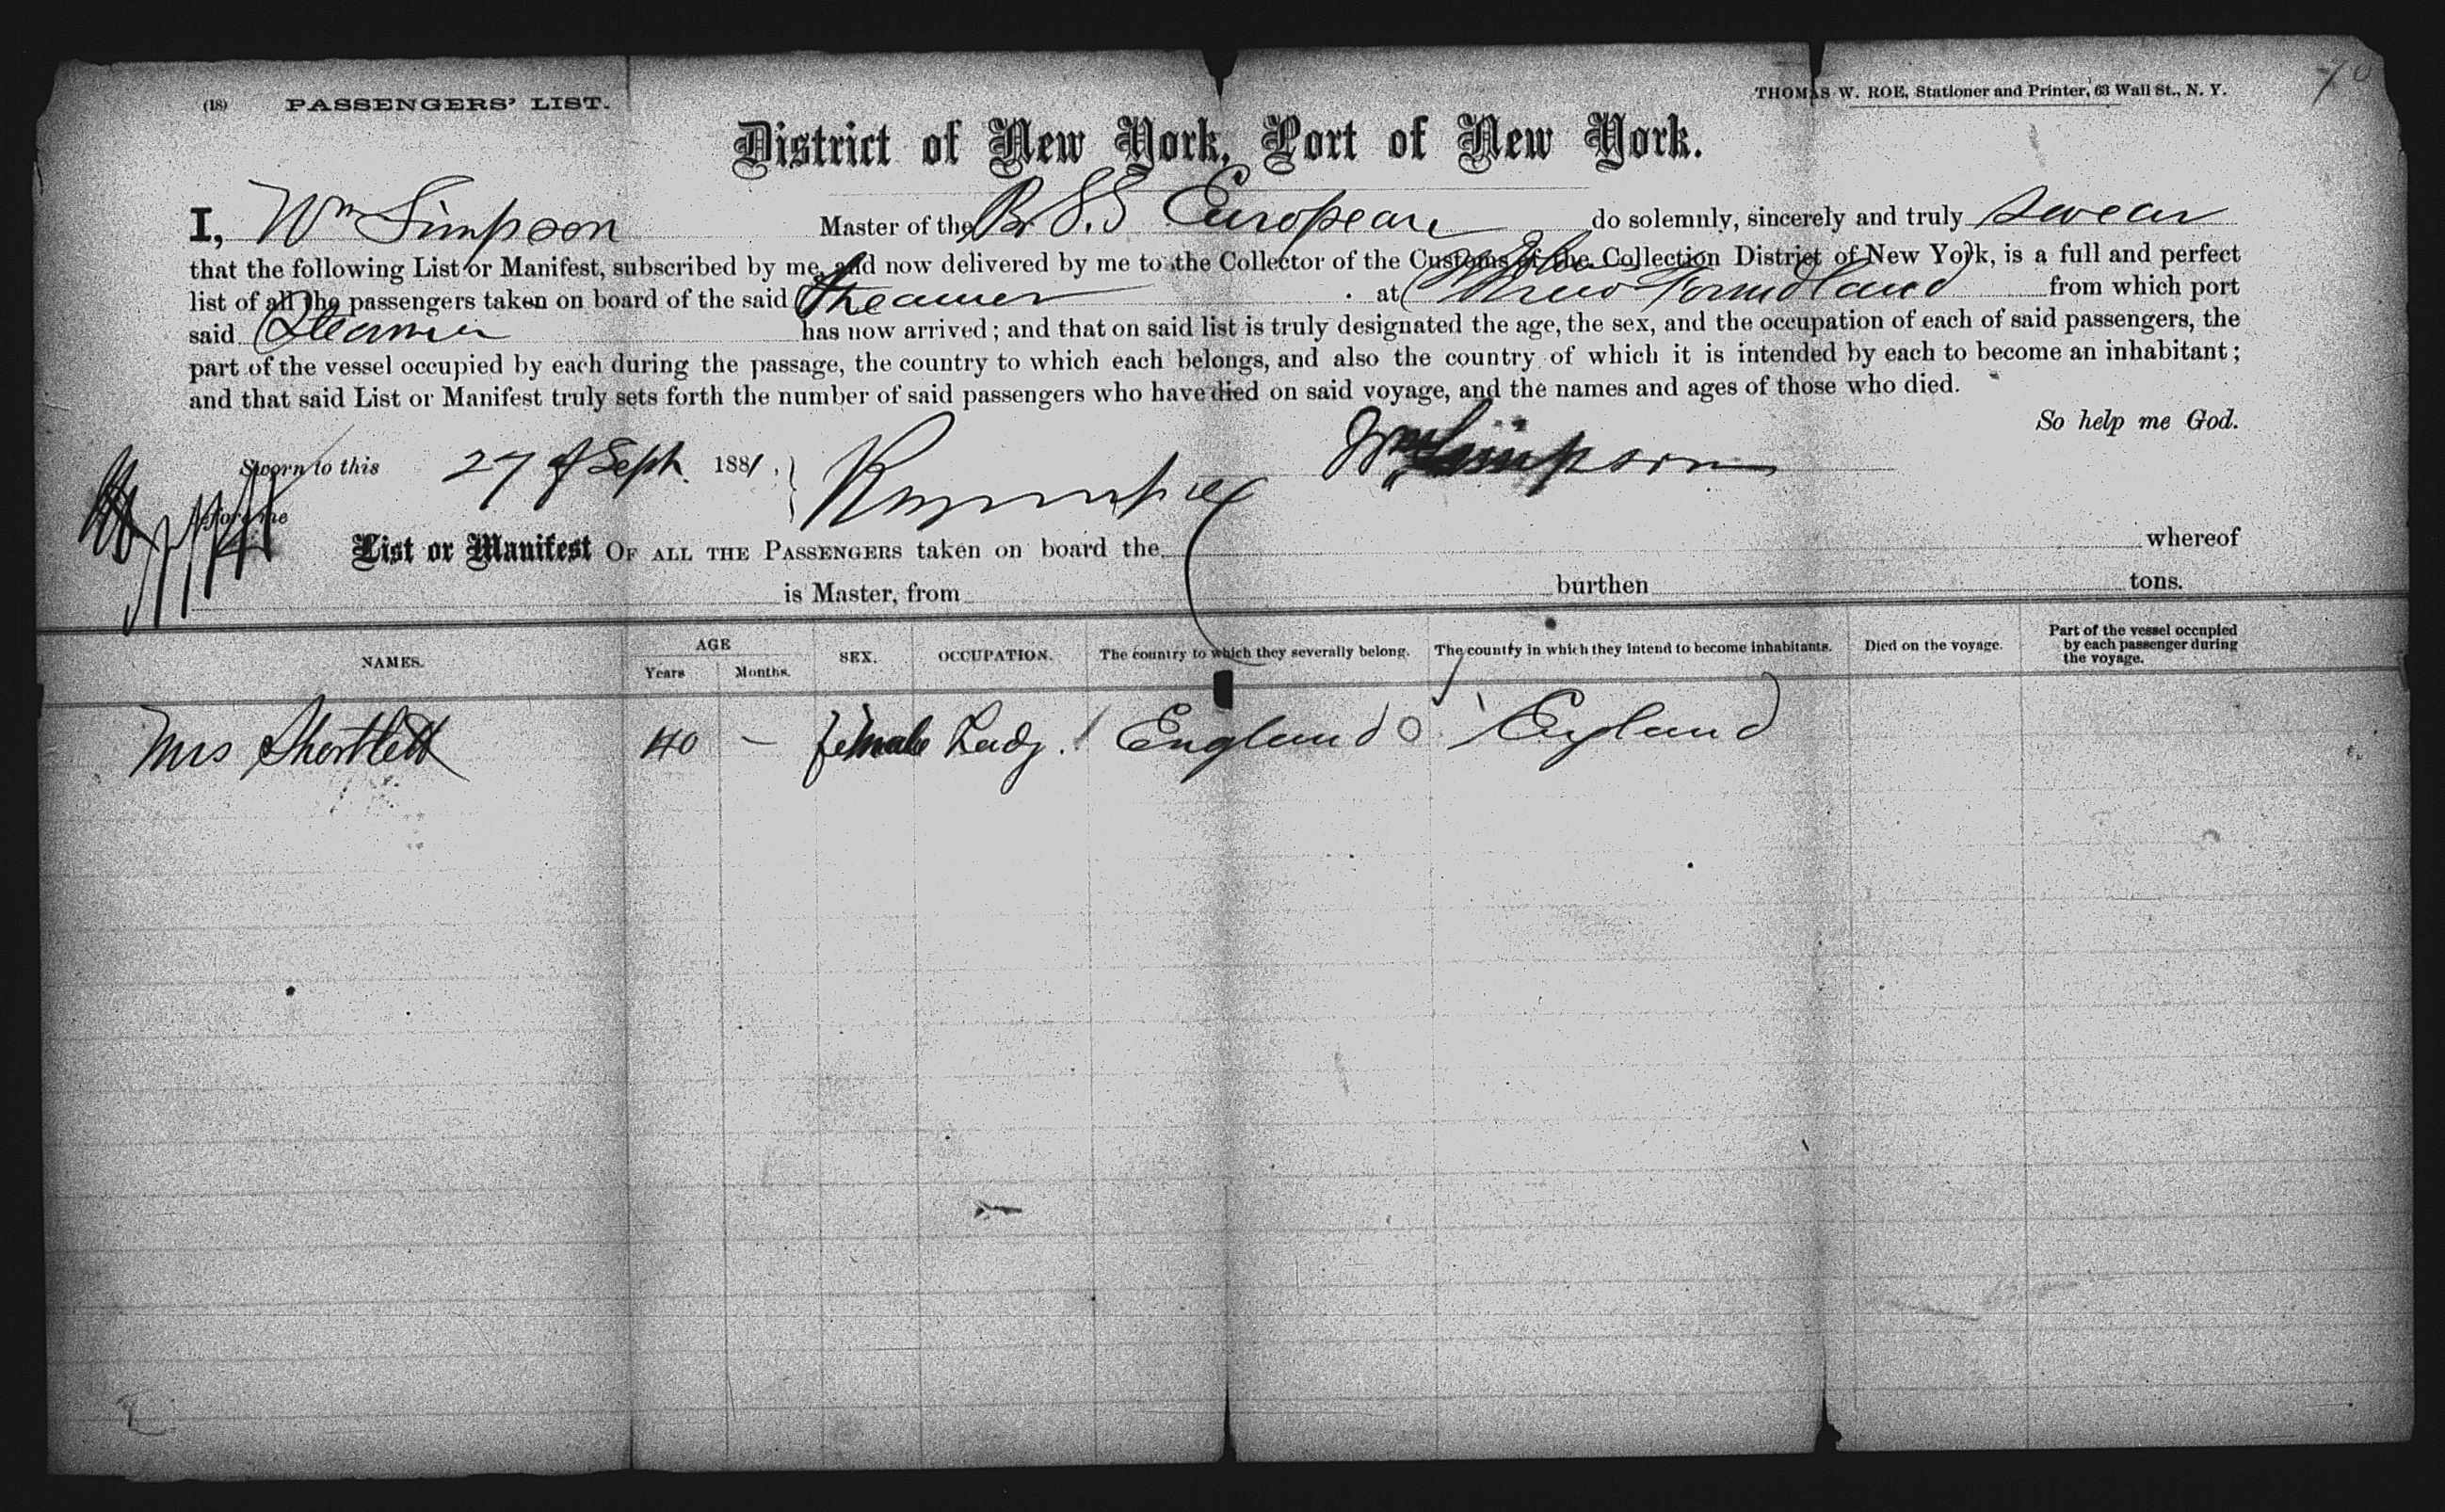 (18) PASSENGERS' LIST.
THOMAS W. ROE, Stationer and Printer, 63 Wall St., N. Y.
70
District of New York, Port of New York.
I, Wm Simpson Master of the Br S.S European do solemnly, sincerely and truly swear
that the following List or Manifest, subscribed by me, and now delivered by me to the Collector of the Customs of the Collection District of New York, is a full and perfect
list of all the passengers taken on board of the said Steamer at New Foundland from which port
said Steamer has now arrived; and that on said list is truly designated the age, the sex, and the occupation of each of said passengers, the
part of the vessel occupied by each during the passage, the country to which each belongs, and also the country of which it is intended by each to become an inhabitant;
and that said List or Manifest truly sets forth the number of said passengers who have died on said voyage, and the names and ages of those who died.
So help me God.
Sworn to this 27 of Sept 1881,
Wm Simpson
before me
List or Manifest OF ALL THE PASSENGERS taken on board the whereof
is Master, from burthen tons.
NAMES. AGE Years Months. SEX. OCCUPATION. The country to which they severally belong. The country in which they intend to become inhabitants. Died on the voyage. Part of the vessel occupied by each passenger during the voyage.
Mrs Shortlett 40 — female Lady. England England